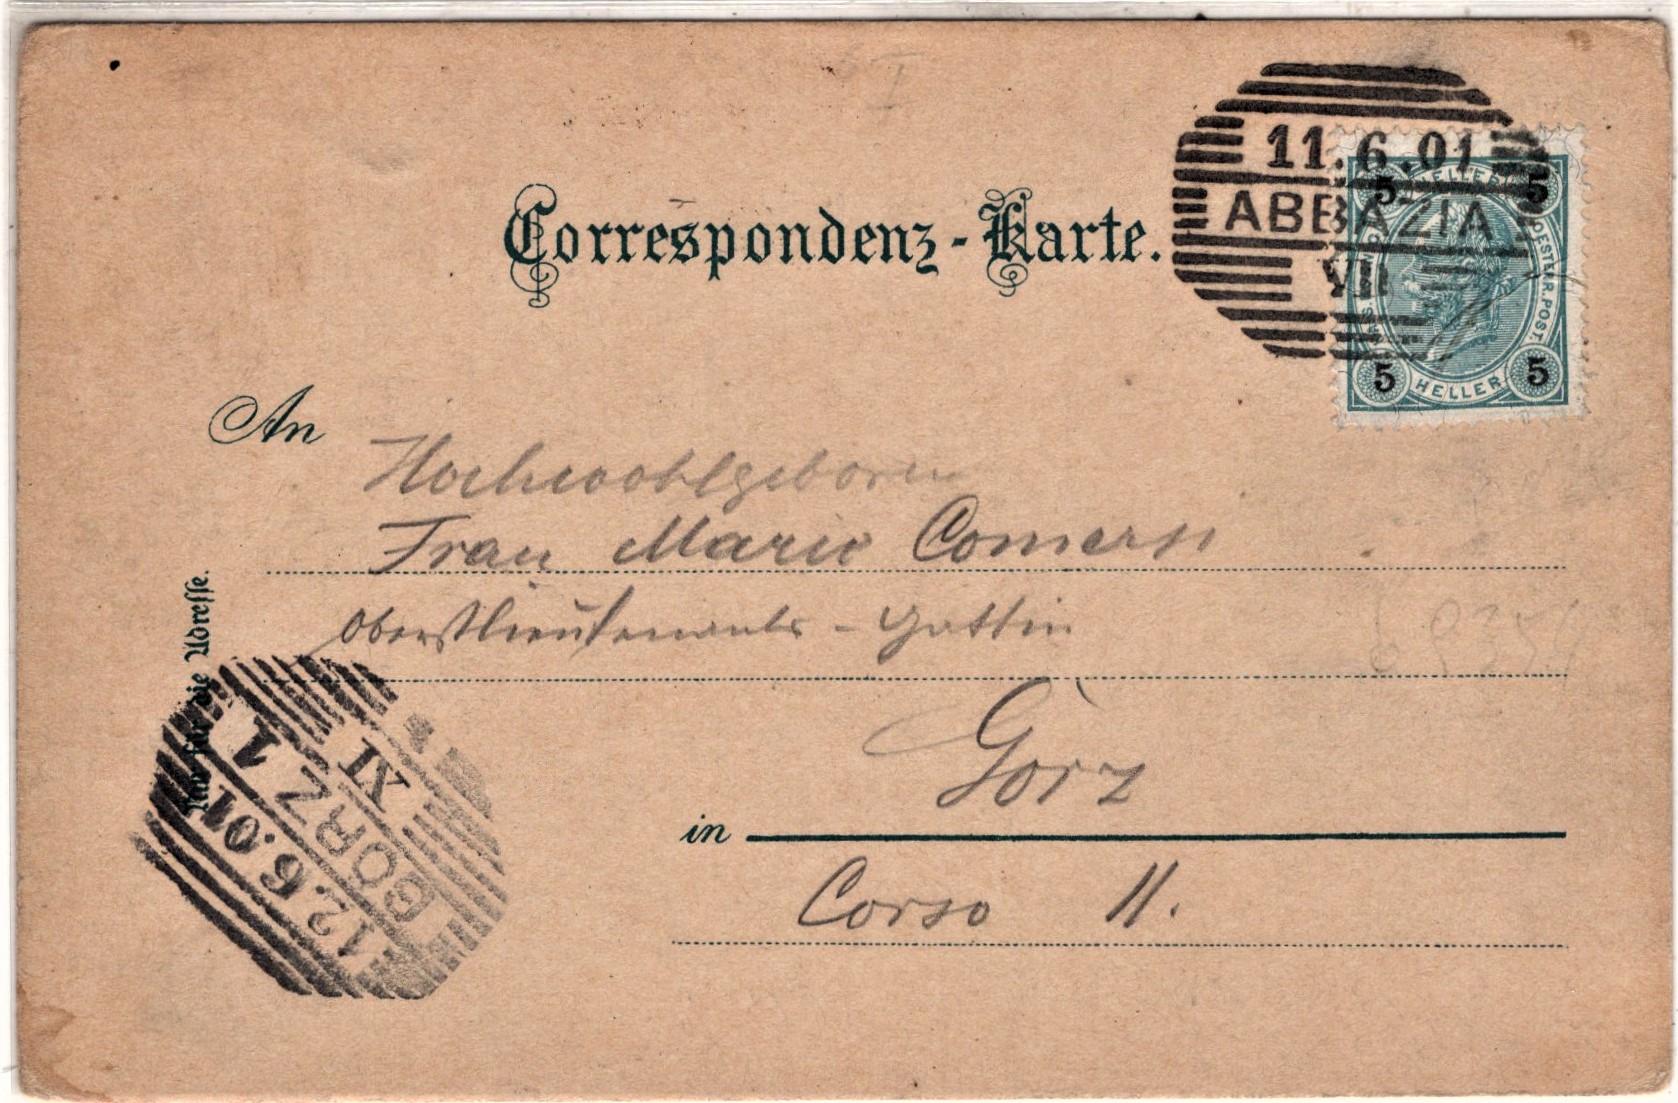 Correspondenz-Karte.
11.6.01
ABBAZIA
VII
5 HELLER 5
OESTERR. POST.
5 HELLER 5
An
Hochwohlgeboren
Frau Marie
Oberstlieutenants - Gattin
Görz
in
Corso 11.
Nur für die Adresse.
12.6.01
GÖRZ 1
XI